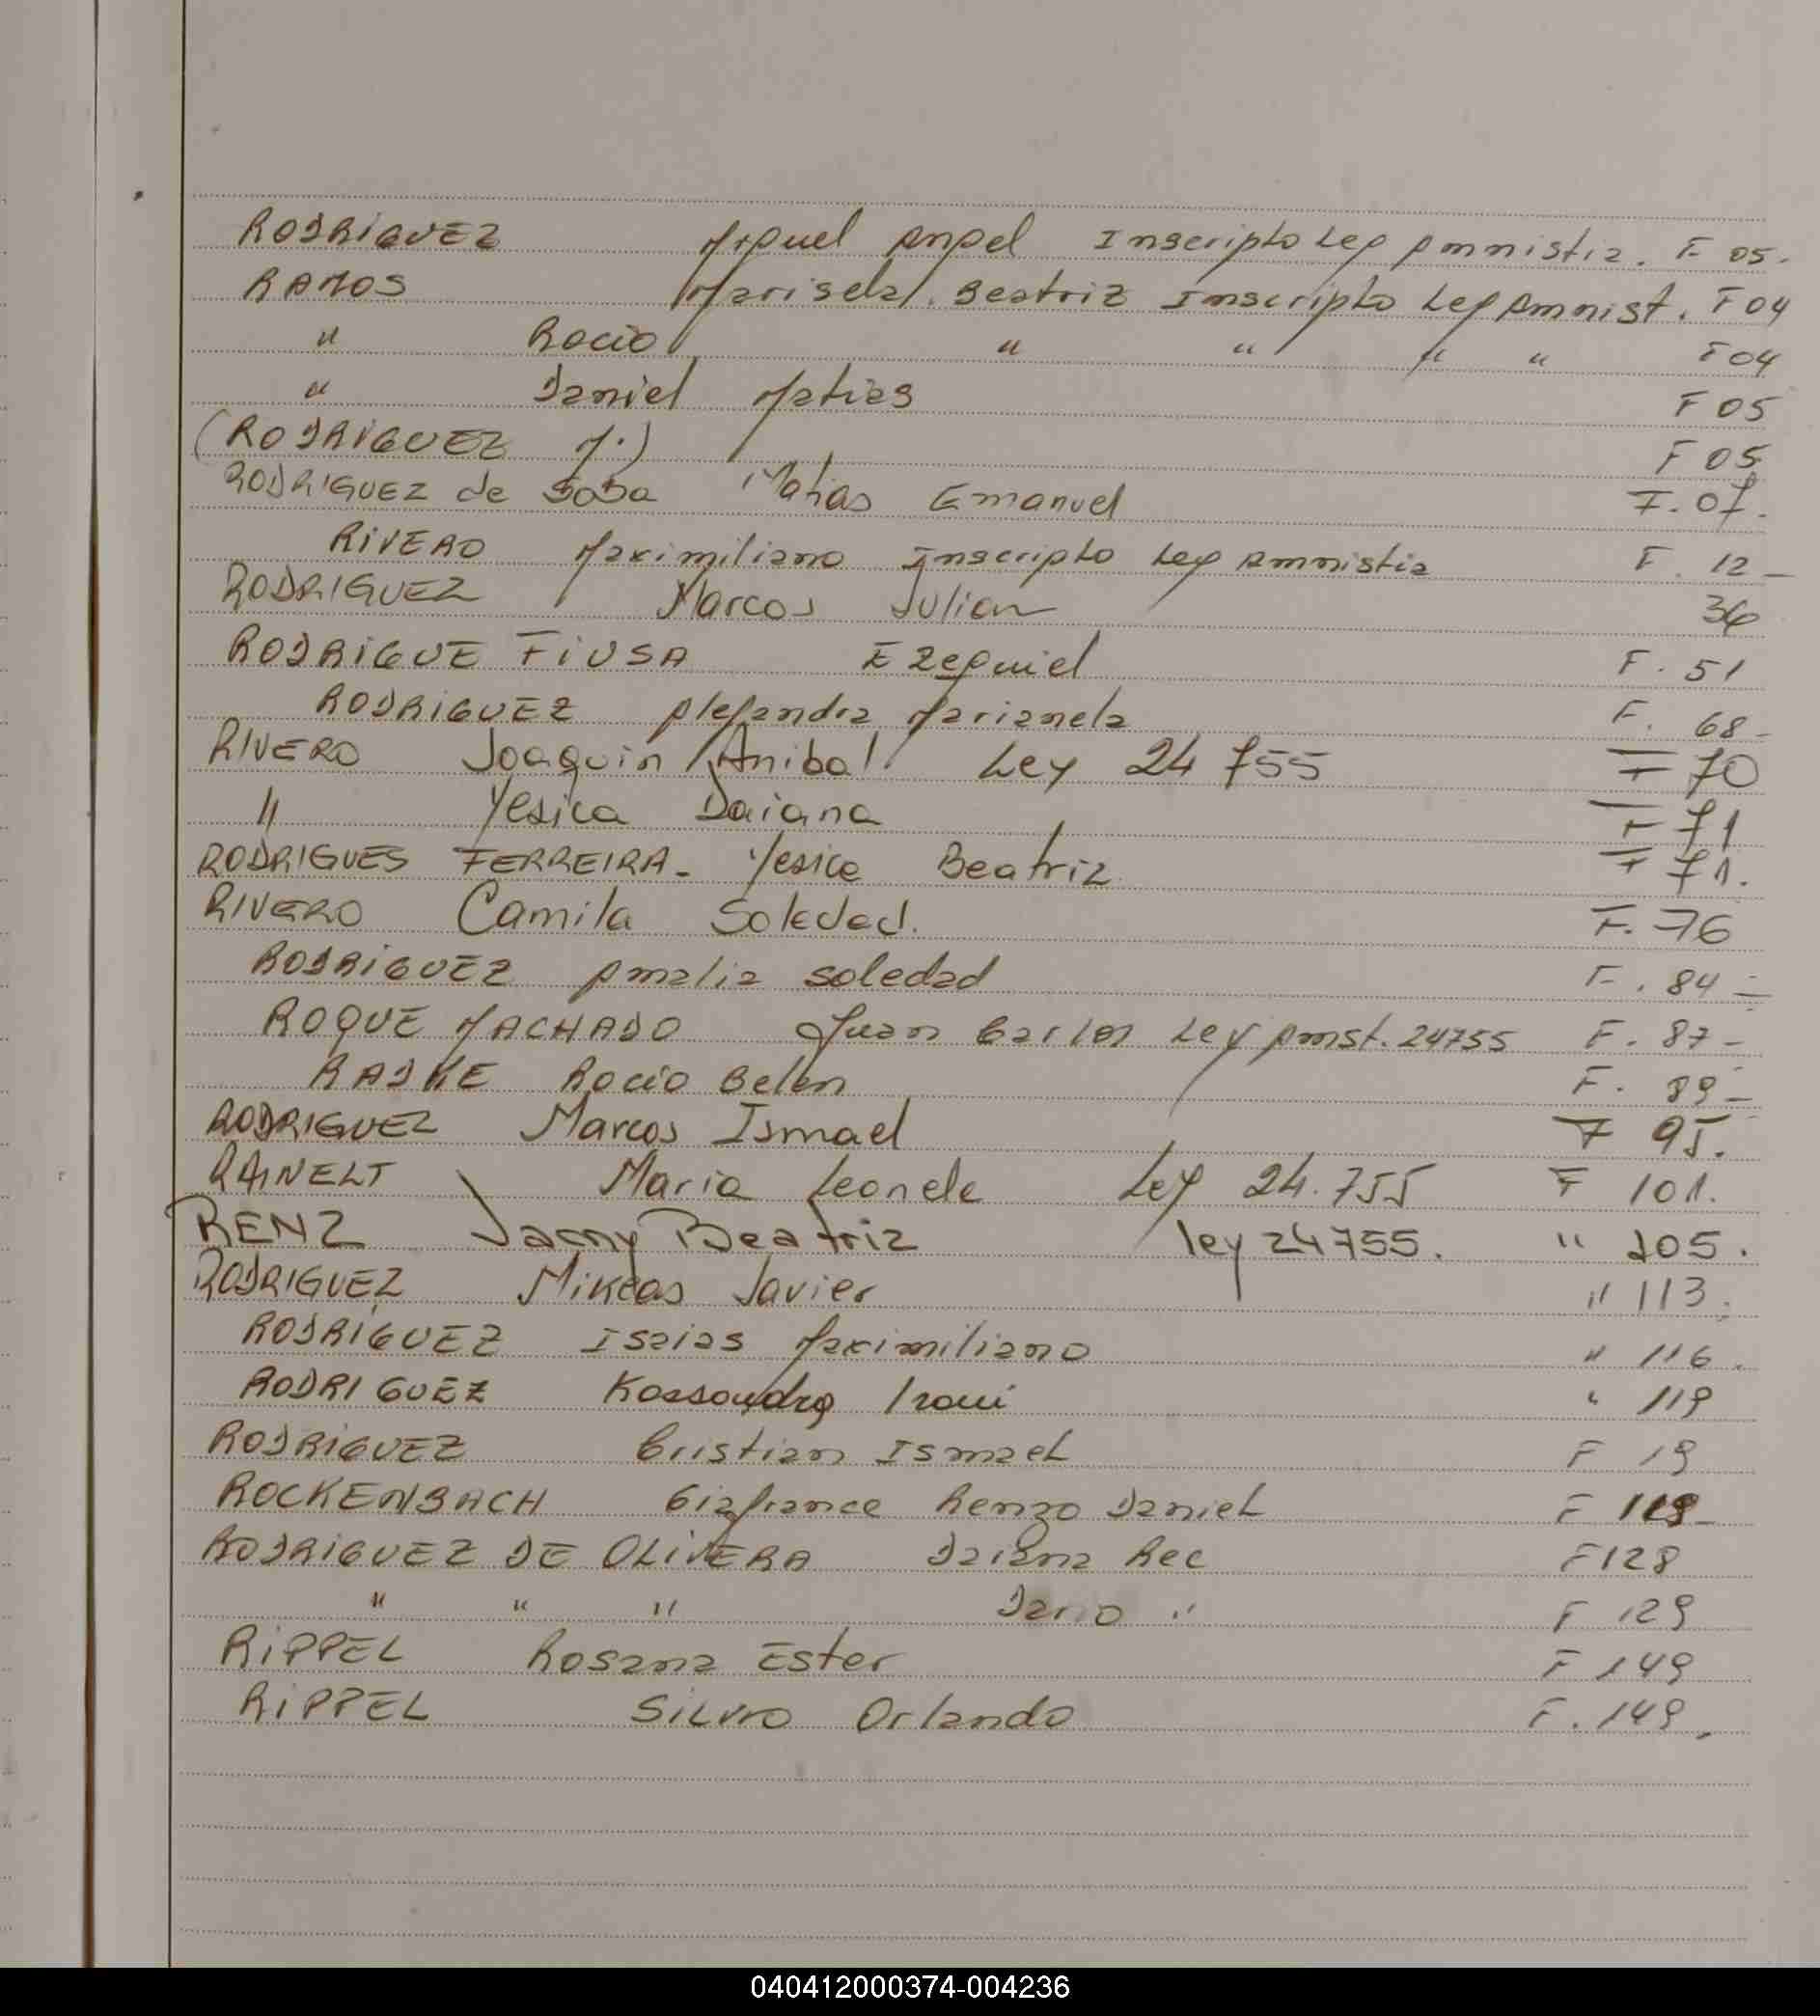 RODRIGUEZ Miguel Angel Inscripto Ley Amnistia. F 05.
RAMOS Marisela. Beatriz Inscripto Ley Amnist. F 04
" Rocio " " " " F 04
" Daniel Matias F 05
(RODRIGUEZ M.) F 05
RODRIGUEZ de SOSA Matias Emanuel F. 07.
RIVERO Maximiliano Inscripto Ley Amnistia F. 12 -
RODRIGUEZ Marcos Julian 36
RODRIGUE FIUSA Ezequiel F. 51
RODRIGUEZ Alejandra Marianela F. 68 -
RIVERO Joaquin Anibal Ley 24 755 F 70
" Yesica Daiana F 71
RODRIGUES FERREIRA - Yesica Beatriz F 71.
RIVERO Camila Soledad. F. 76
RODRIGUEZ Amalia Soledad F. 84 -
ROQUE MACHADO Juan Carlos Ley Amst. 24755 F. 87 -
RADKE Rocio Belen F. 89 -
RODRIGUEZ Marcos Ismael F 95.
RAINELT Maria Leonela Ley 24.755 F 101.
RENZ Jacny Beatriz ley 24755. " 105.
RODRIGUEZ Mikeas Javier " 113.
RODRIGUEZ Isaias Maximiliano " 116.
RODRIGUEZ Kassandra Irani " 119
RODRIGUEZ Cristian Ismael F 19
ROCKENBACH Giafrance Renzo Daniel F
RODRIGUEZ DE OLIVERA Daiana Rec F 128
" " " Dario " F 129
RIPPEL Rosana Ester F 149
RIPPEL Silvio Orlando F. 149.
040412000374-004236